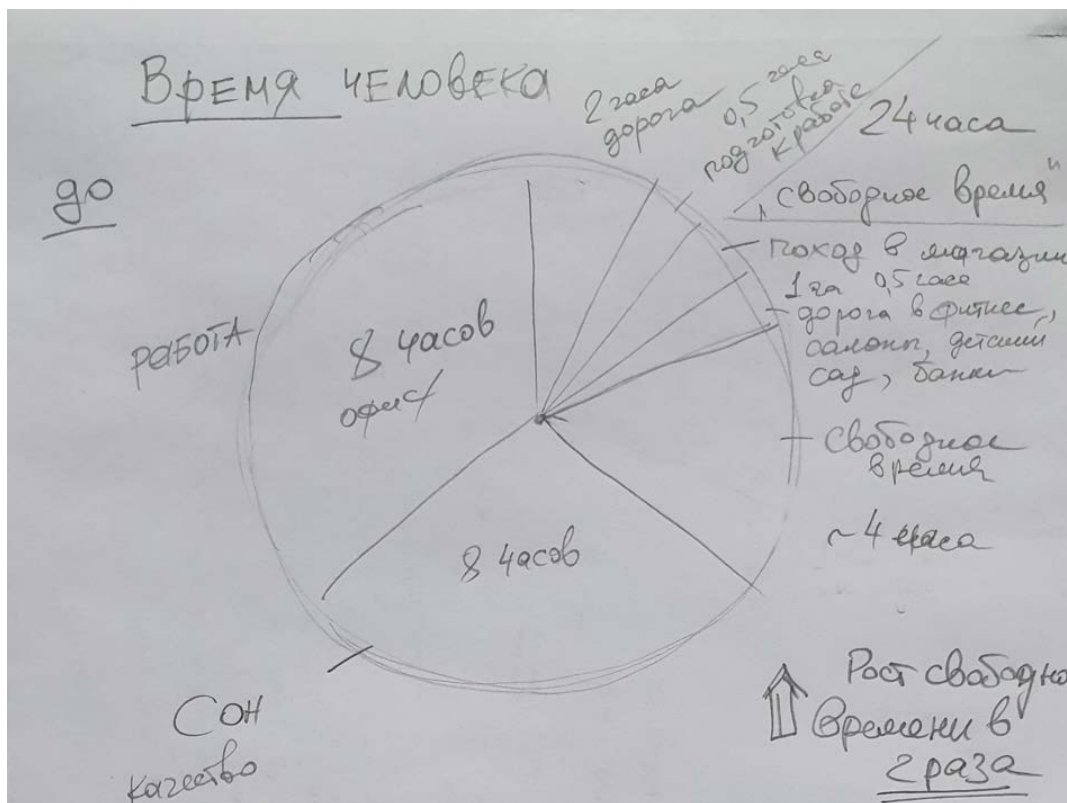 Время человека
до
2 часа
дорога
0,5 часа
подготовка
к работе
24 часа
"свободное время"
поход в магазин
0,5 часа
дорога в фитнес,
салоны, детский
сад, банки
свободное
время
~4 часа
работа
8 часов
офис
8 часов
Сон
качество
Рост свободно
времени в
2 раза